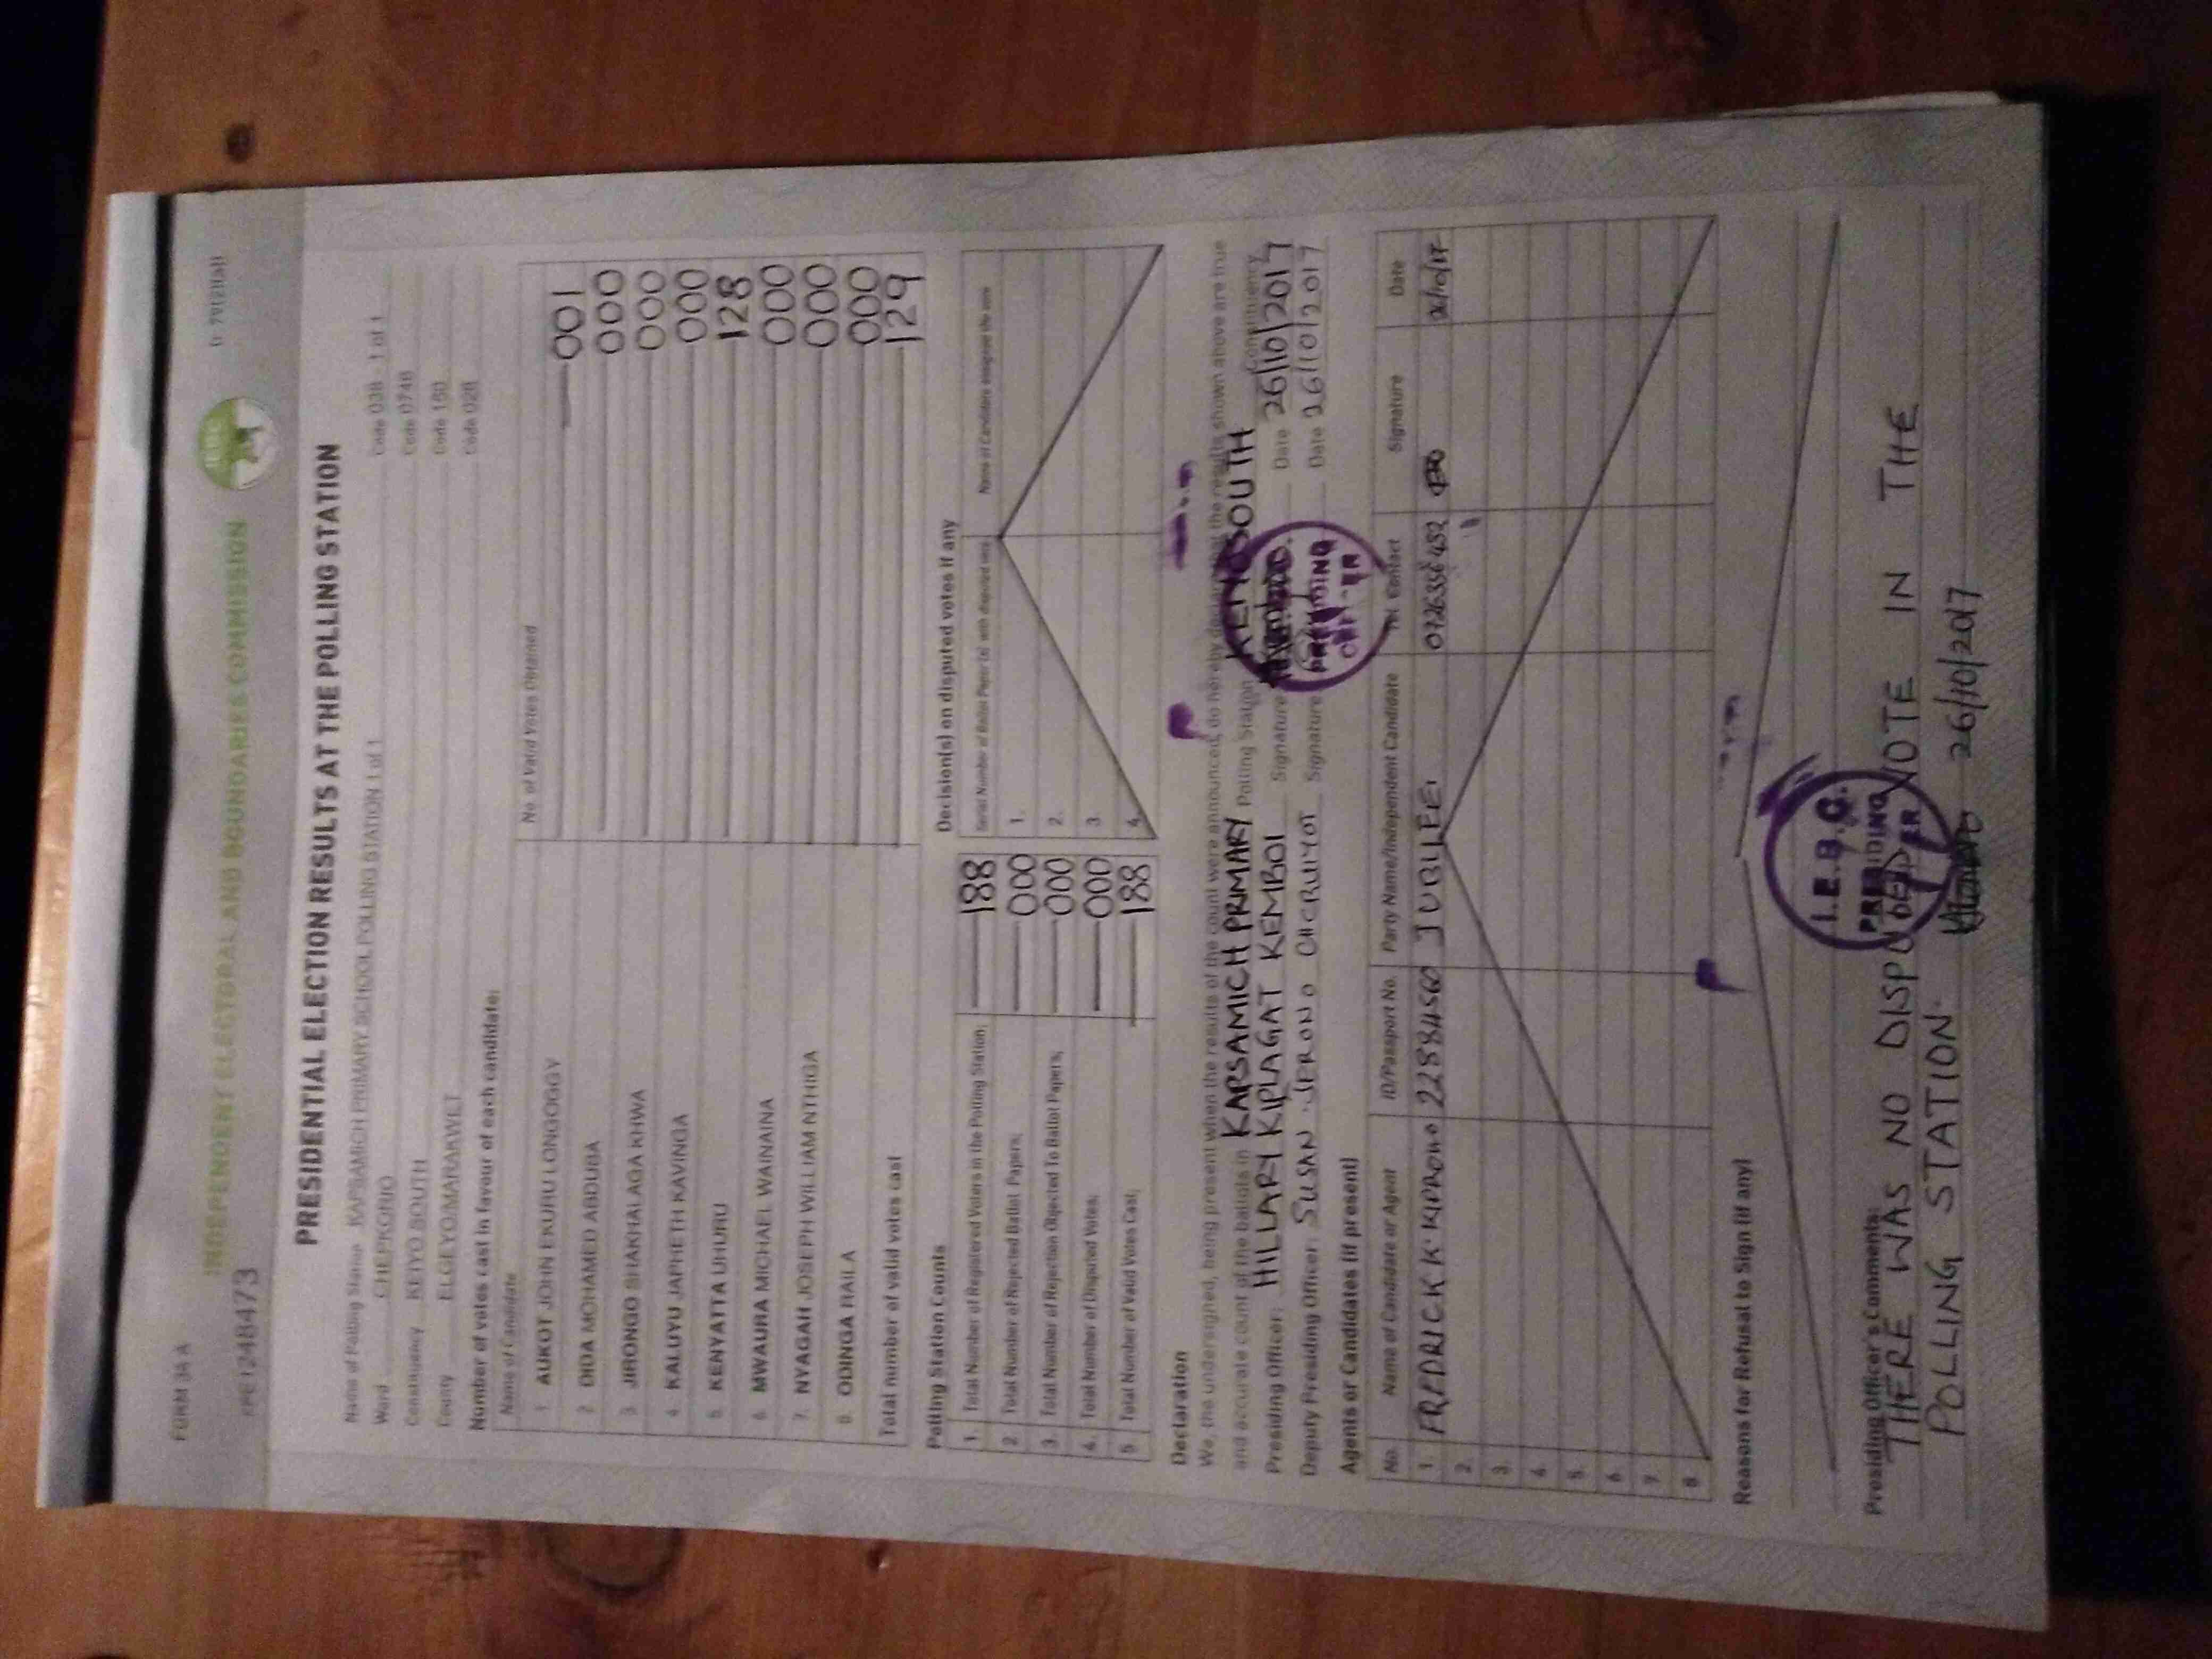 FORM 34 A
INDEPENDENT ELECTORAL AND BOUNDARIES COMMISSION
PRESIDENTIAL ELECTION RESULTS AT THE POLLING STATION
Name of Polling Station KAPSAMICH PRIMARY SCHOOL POLLING STATION 1 of 1 Code 038 - 1 of 1
Ward CHEPKORIO Code 0746
Constituency KEIYO SOUTH Code 150
County ELGEYO/MARAKWET Code 028
Number of votes cast in favour of each candidate:
Name of Candidate No. of Valid Votes Obtained
1. AUKOT JOHN EKURU LONGOGGY 001
2. DIDA MOHAMED ABDUBA 000
3. JIRONGO SHAKHALAGA KHWA 000
4. KALUYU JAPHETH KAVINGA 000
5. KENYATTA UHURU 128
6. MWAURA MICHAEL WAINAINA 000
7. NYAGAH JOSEPH WILLIAM NTHIGA 000
8. ODINGA RAILA 000
Total number of valid votes cast 129
Polling Station Counts
1. Total Number of Registered Voters in the Polling Station; 188
2. Total Number of Rejected Ballot Papers; 000
3. Total Number of Rejection Objected To Ballot Papers; 000
4. Total Number of Disputed Votes; 000
5. Total Number of Valid Votes Cast; 188
Decision(s) on disputed votes if any
Serial Number of Ballot Paper (s) with disputed vote
1.
2.
3.
4.
Declaration
We, the undersigned, being present when the results of the count were announced, do hereby declare that the results shown above are true
and accurate count of the ballots in KAPSAMICH PRIMARY Polling Station SOUTH Constituency
Presiding Officer: HILLARY KIPLAGAT KEMBOI Signature Date 26/10/2017
Deputy Presiding Officer: SUSAN JERONO Signature Date 26/10/2017
PRESIDING
Agents or Candidates (if present)
No. Name of Candidate or Agent ID/Passport No. Party Name/Independent Candidate Tel. Contact Signature Date
1. FREDRICK K. KIPRONO 22884560 JUBILEE 26/10/17
2.
3.
4.
5.
6.
7.
8.
Reasons for Refusal to Sign (if any)
I.E.B.C.
PRESIDING
Presiding Officer's Comments:
THERE WAS NO DISPUTED VOTE IN THE
POLLING STATION. 26/10/2017